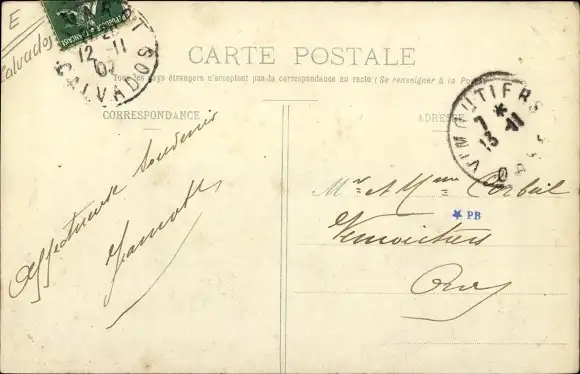 E
Calvados
12 -11
07
CALVADOS
CARTE POSTALE
Tous les pays étrangers n'acceptent pas la correspondance au recto (Se renseigner à la Poste)
CORRESPONDANCE
ADRESSE
VIMOUTIERS
7 *
13 -11
ORNE
Affectueux Souvenir
Mr et Mme Corbeil
PB
Vimoutiers
Orne